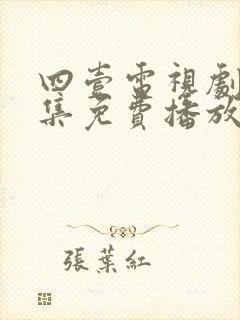 四壹電視劇
集免費播放
張葉紅